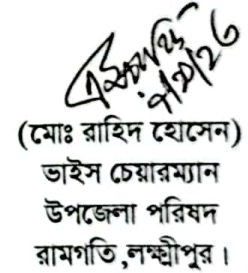 (মোঃ রাহিদ হোসেন)
ভাইস চেয়ারম্যান
উপজেলা পরিষদ
রামগতি,লক্ষ্মীপুর।